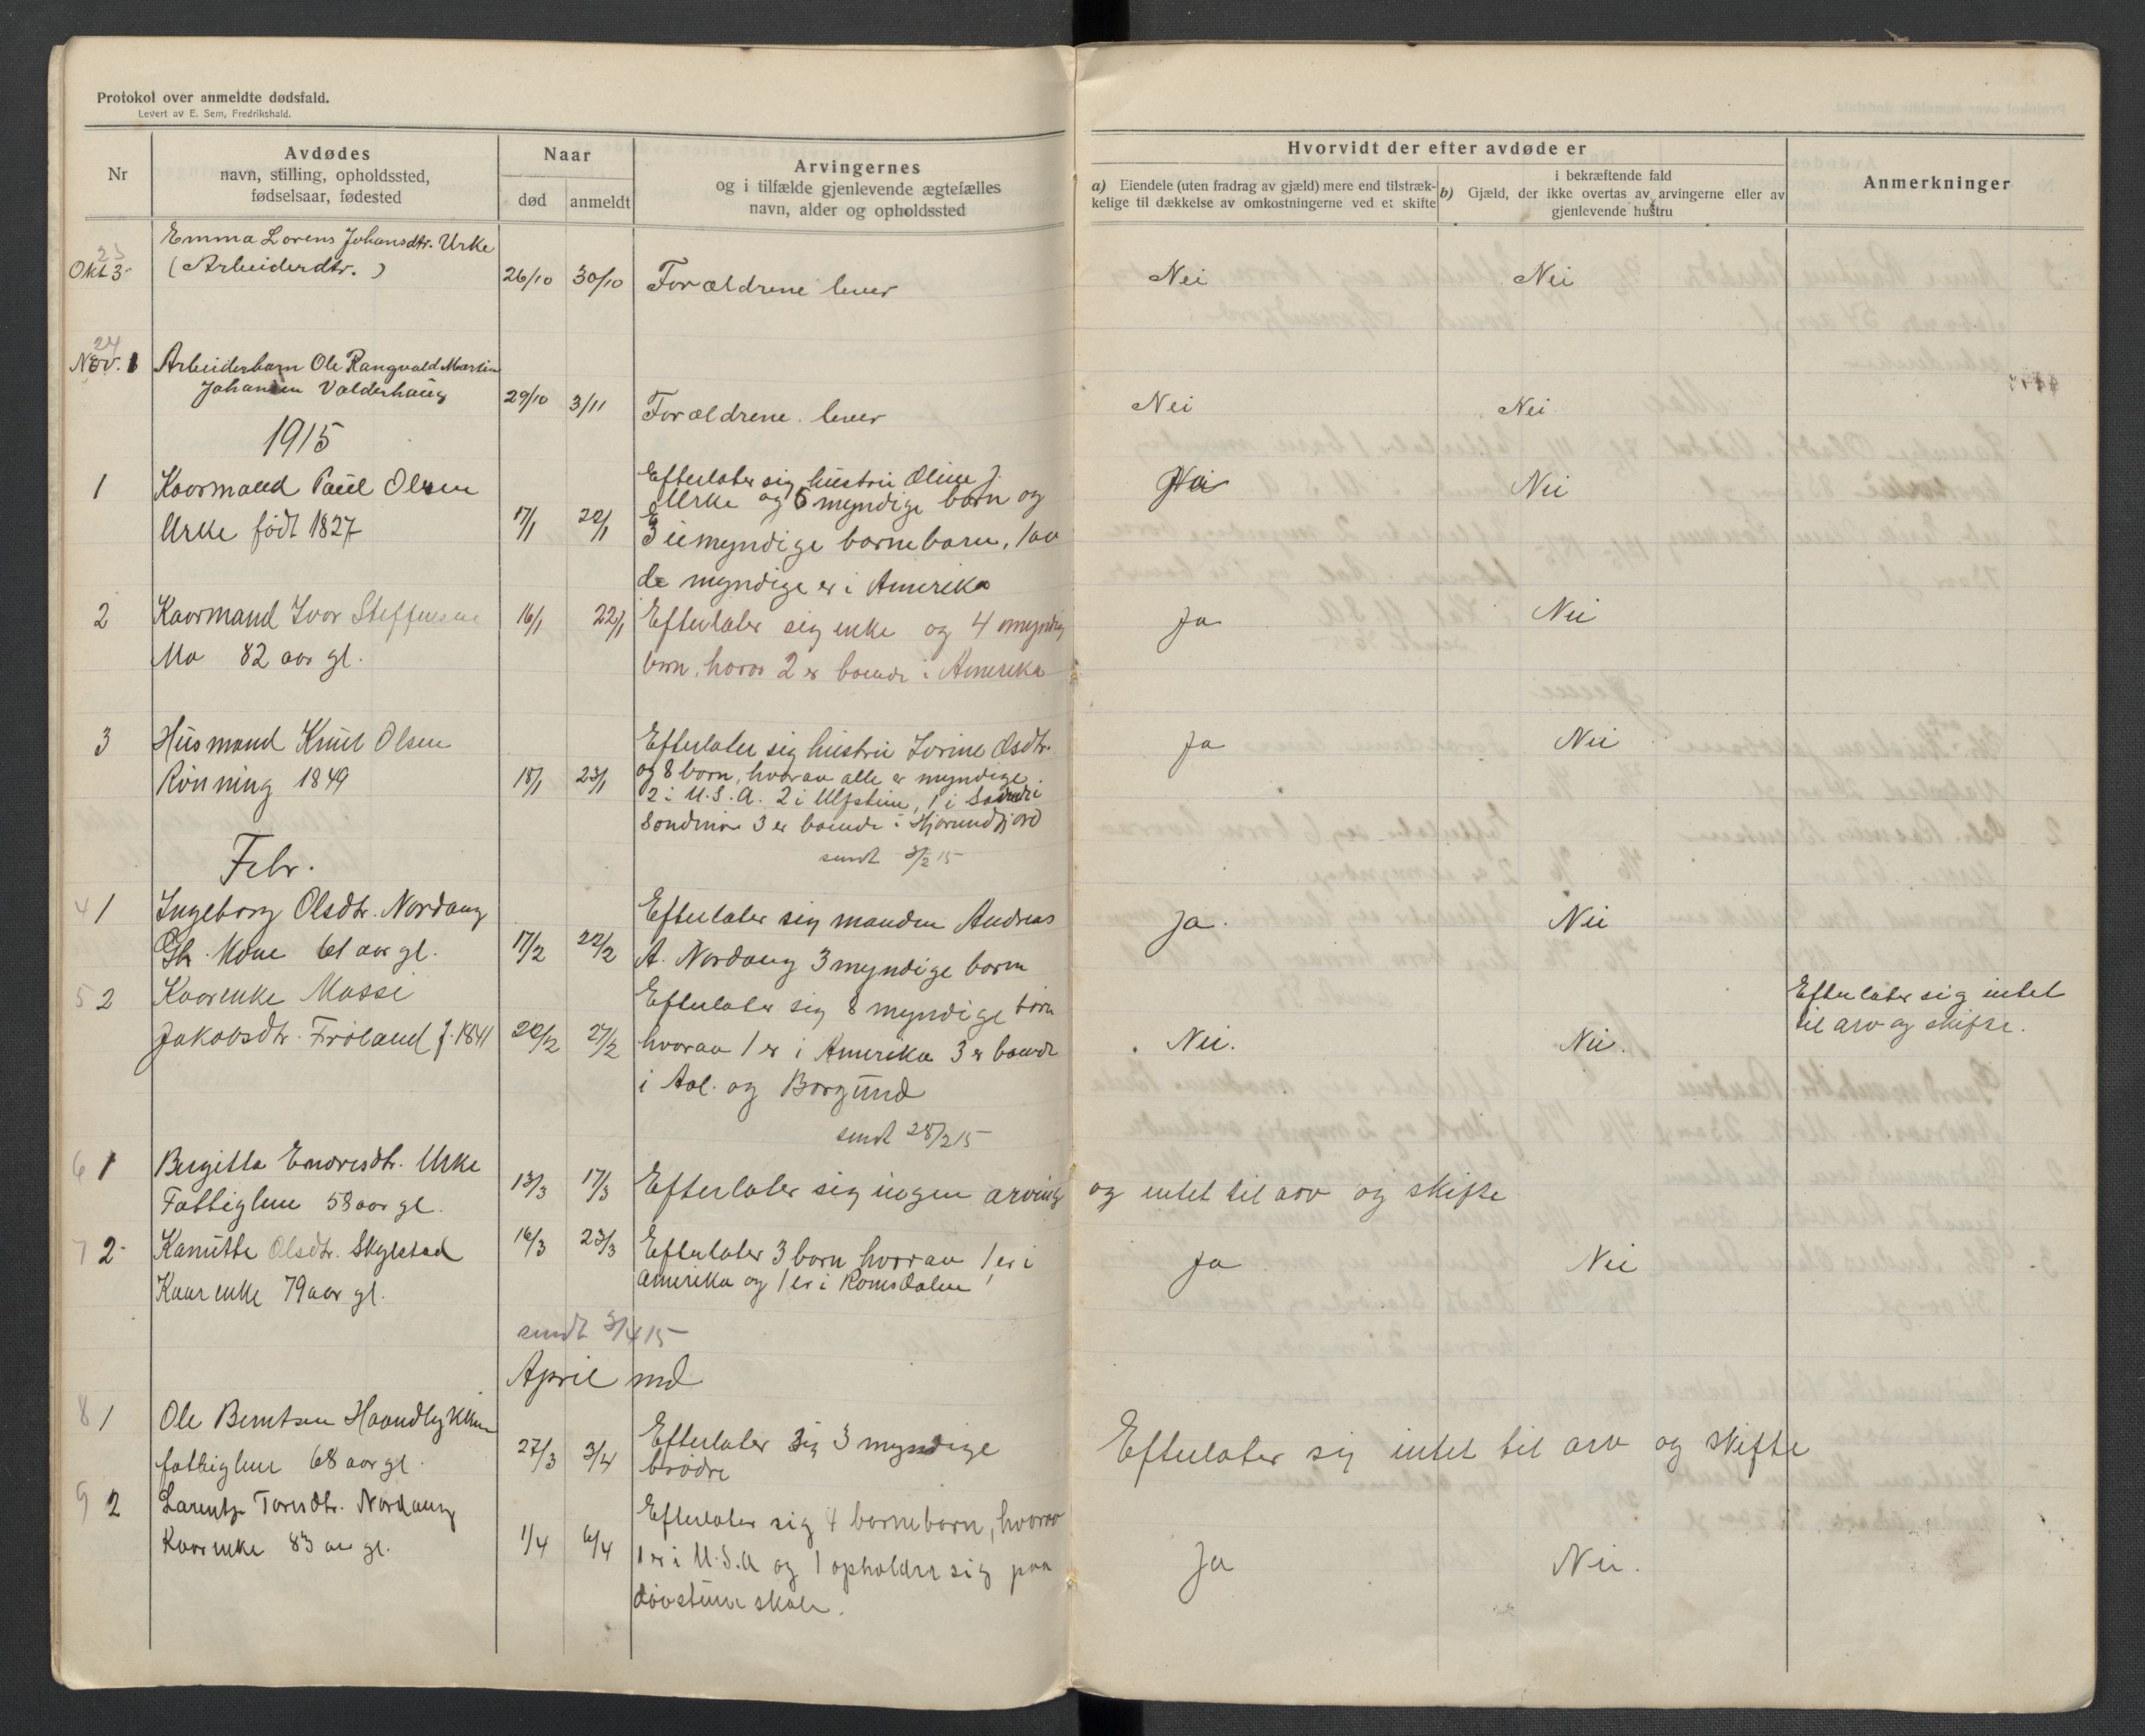 Protokol over anmeldte dødsfald.
Levert av E. Sem, Fredrikshald.
Nr
Avdødes
navn, stilling, opholdssted,
fødselsaar, fødested
Naar
død
anmeldt
Arvingernes
og i tilfælde gjenlevende ægtefælles
navn, alder og opholdssted
Hvorvidt der efter avdøde er
a) Eiendele (uten fradrag av gjæld) mere end tilstræk-
kelige til dækkelse av omkostningerne ved et skifte
i bekræftende fald
b) Gjæld, der ikke overtas av arvingerne eller av
gjenlevende hustru
Anmerkninger
23
Okt 3
Emma Lorens Johansdtr. Urke
(Arbeiderdtr.)
26/10 30/10 Forældrene lever Nei Nei
24
Nov. 1 Arbeiderbarn Ole Rangvald Martin
Johansen Valderhaug
29/10 3/11 Forældrene lever Nei Nei
1915
1 Kaarmand Paul Olsen
Urke født 1827
17/1 22/1
Efterlater sig hustru Oline J.
Urke og 6 myndige barn og
3 umyndige barnebarn, 1 av
de myndige er i Amerika
Nei
2 Kaarmand Ivar Steffensen
Mo 82 aar gl.
16/1 22/1 Efterlater sig enke og 4 myndig
born, horav 2 er boende i Amerika
Ja Nei
3 Husmand Knut Olsen
Rönning 1849
18/1 23/1
Efterlater sig hustru Lorine Osdtr.
og 8 born, hvorav alle er myndige.
2 i U.S.A. 2 i Ulfstein, 1 i Søndre
Søndmør 3 er boende i Hjørundfjord
sendt 3/2 15
Ja Nei
Febr.
4 1 Ingeborg Olsdtr. Nordang
Gb. Kone 61 aar gl.
17/2 22/2
Efterlater sig manden Andreas
A. Nordang 3 myndige born
Ja. Nei
5 2 Kaarenke Massi
Jakobsdtr. Fröland f. 1841
20/2 27/2
Efterlater sig 8 myndige born
hvorav 1 er i Amerika 3 er boende
i Aal. og Borgund
sendt 28/2 15
Nei. Nei.
Efterlater sig intet
til arv og skifte.
6 1 Birgitta Endresdtr. Urke
Fattiglem 58 aar gl.
13/3 17/3 Efterlater sig ingen arving og intet til arv og skifte
7 2 Kanutte Olsdtr. Skylstad
Kaarenke 79 aar gl.
16/3 23/3 Efterlater 3 born hvorav 1 er i
Amerika og 1 er i Romsdalen
Ja Nei
sendt 3/4 15
April md
8 1 Ole Berntsen Haandlykken
fattiglem 68 aar gl.
27/3 3/4 Efterlater sig 3 myndige
brödre
Efterlater sig intet til arv og skifte
9 2 Larentze Toresdtr. Nordang
Kaarenke 83 aar gl.
1/4 6/4
Efterlater sig 4 barnebarn, hvorav
1 er i U.S.A og 1 opholder sig paa
dövstumeskole.
Ja Nei.